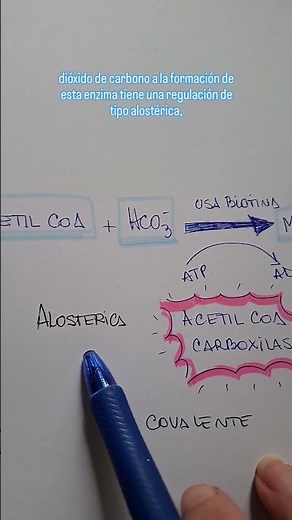 dióxido de carbono a la formación de
esta enzima tiene una regulación de
tipo alostérica,
USA BIOTINA
ETIL COA + HCO3-
M
ATP
AD
ALOSTERICA
ACETIL COA
CARBOXILAS
COVALENTE